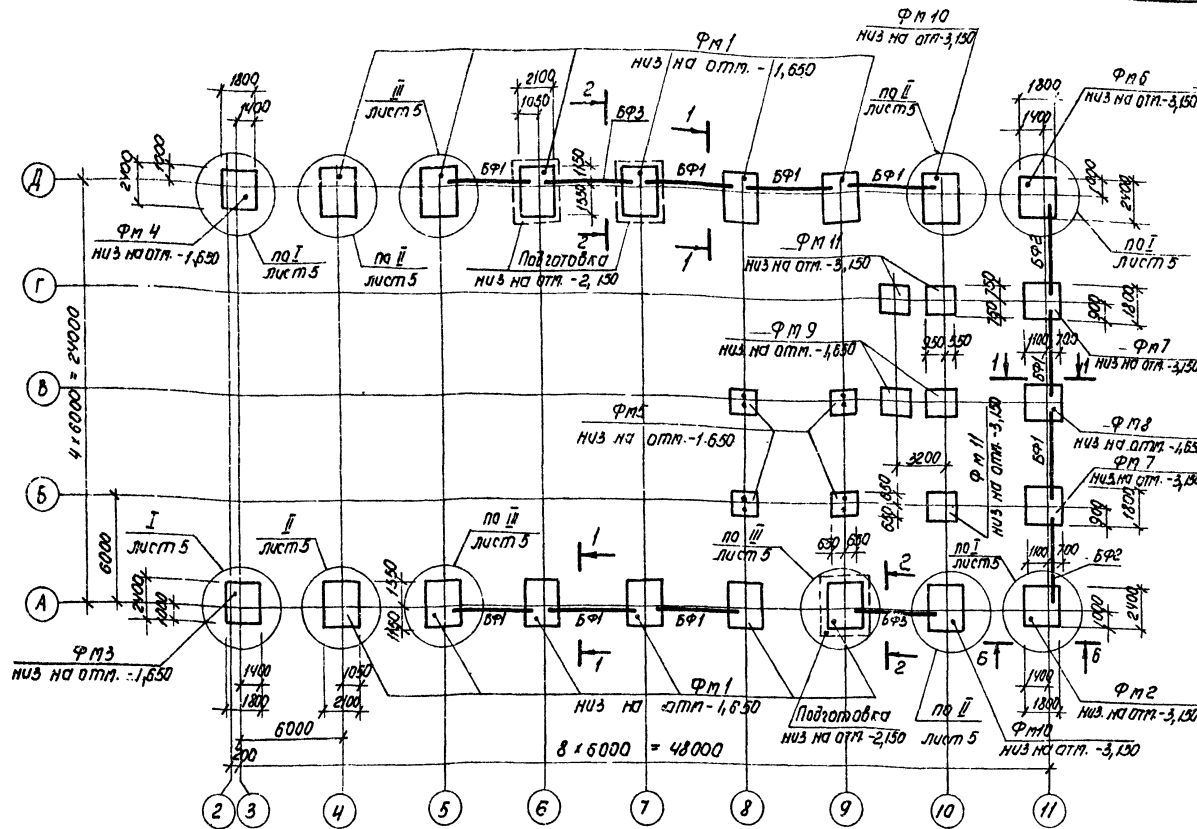 Фм10
низ на отм-3,150
Фм1
низ на отм. -1,650
1800
1400
III
лист 5
2100
1050
2
БФ3
1
по II
лист 5
Фм6
1800
низ на отм.-3,150
1400
Д
2400
1000
БФ1
1150
1350
БФ1
БФ1
БФ1
БФ1
1000
2400
Фм 4
низ на отм. -1,650
по I
лист 5
по II
лист 5
Подготовка
низ на отм. -2,150
2
1
Фм11
низ на отм. -3,150
БФ2
по I
лист 5
Г
750
750
900
1800
4 x 6000 = 24000
Фм 9
низ на отм.-1,650
950
550
1100
700
Фм7
низ на отм.-3,150
1
1
БФ1
В
Фм5
низ на отм.-1.650
3200
Фм 11
низ на отм.-3,150
Фм8
низ на отм.-1,650
БФ1
Фм 7
низ на отм.-3,150
Б
650
650
900
1800
6000
I
лист 5
II
лист 5
по III
лист 5
1
по III
лист 5
650
650
2
по I
лист 5
1100
700
БФ2
А
2400
1000
1350
1150
БФ1
БФ1
БФ1
БФ3
1000
2400
Фм3
низ на отм. -1,650
1
2
Б
Б
1400
1800
1050
2100
Фм1
низ на отм-1,650
Подготовка
низ на отм. -2,150
по II
лист 5
Фм10
низ на отм. -3,150
1400
1800
Фм2
низ на отм.-3,150
6000
200
8 x 6000 = 48000
2
3
4
5
6
7
8
9
10
11